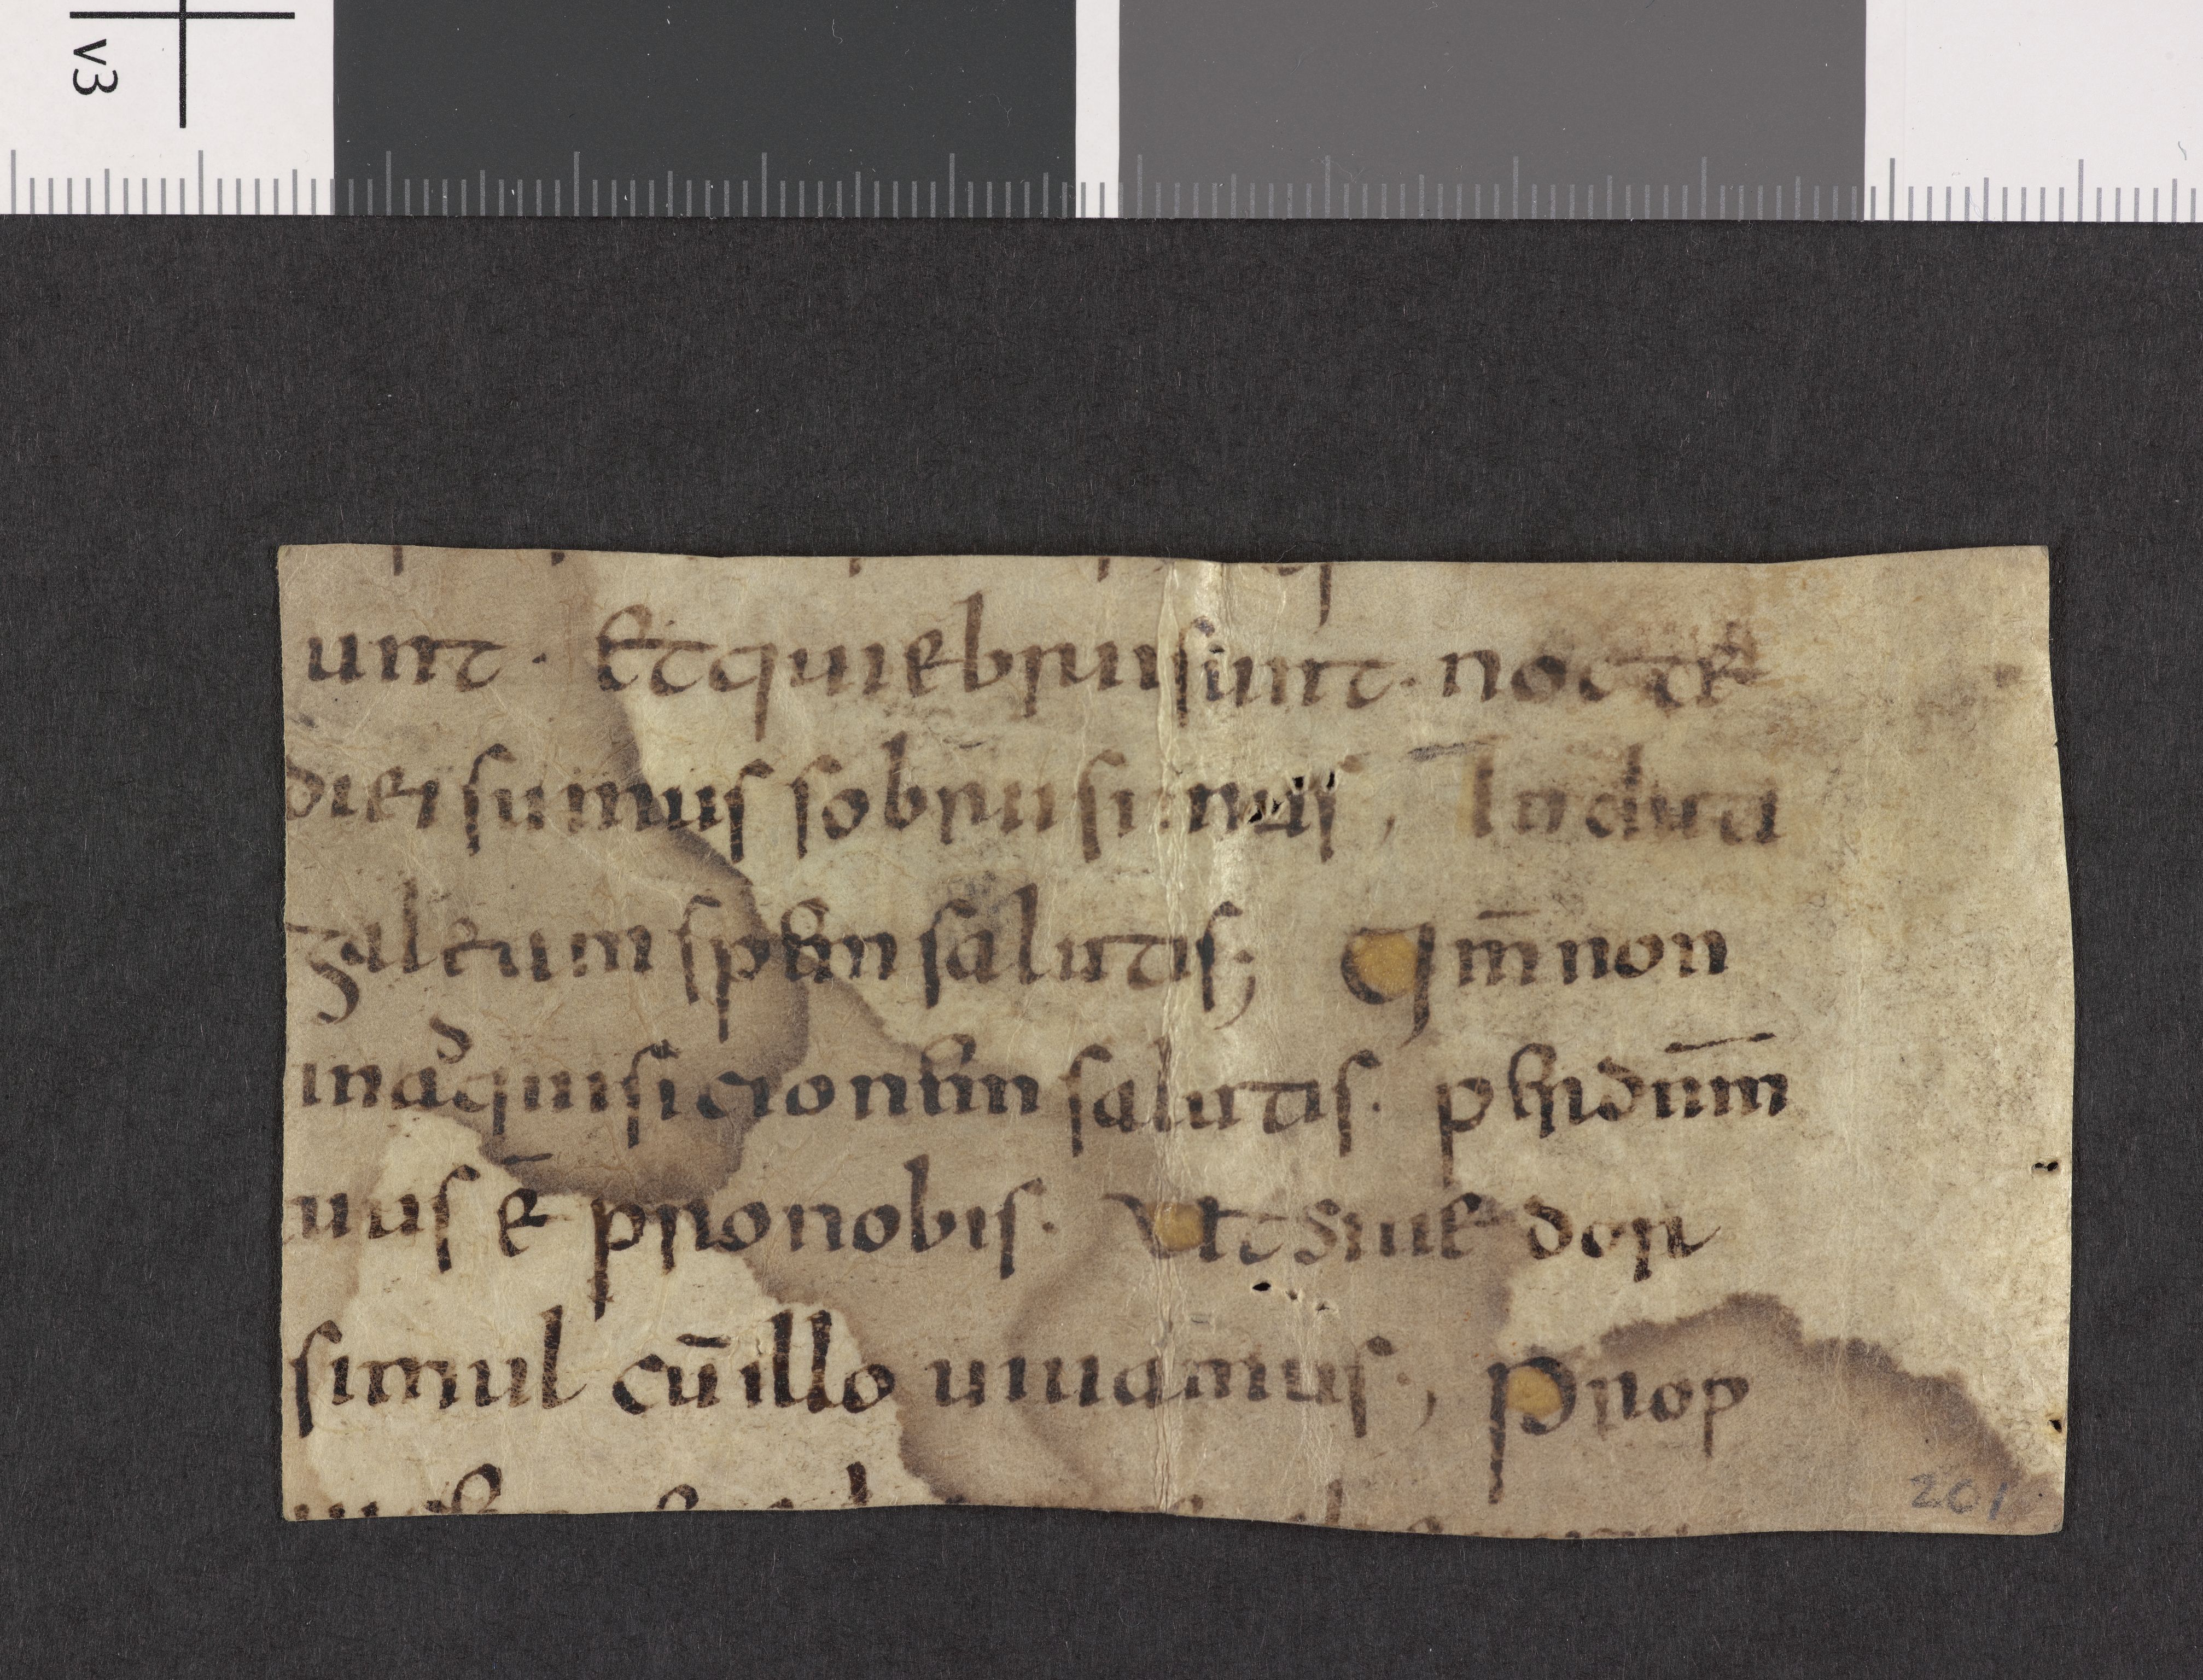 v3
unt. Et qui ebrii sunt. nocte
diei sumus sobrii simus, Induti
galeam spem salutis; Qm̄ non
in adquisicionem salutis. per dnm̄
uus ē pro nobis. Ut siue dor
simul cū illo uiuamus., Prop
201